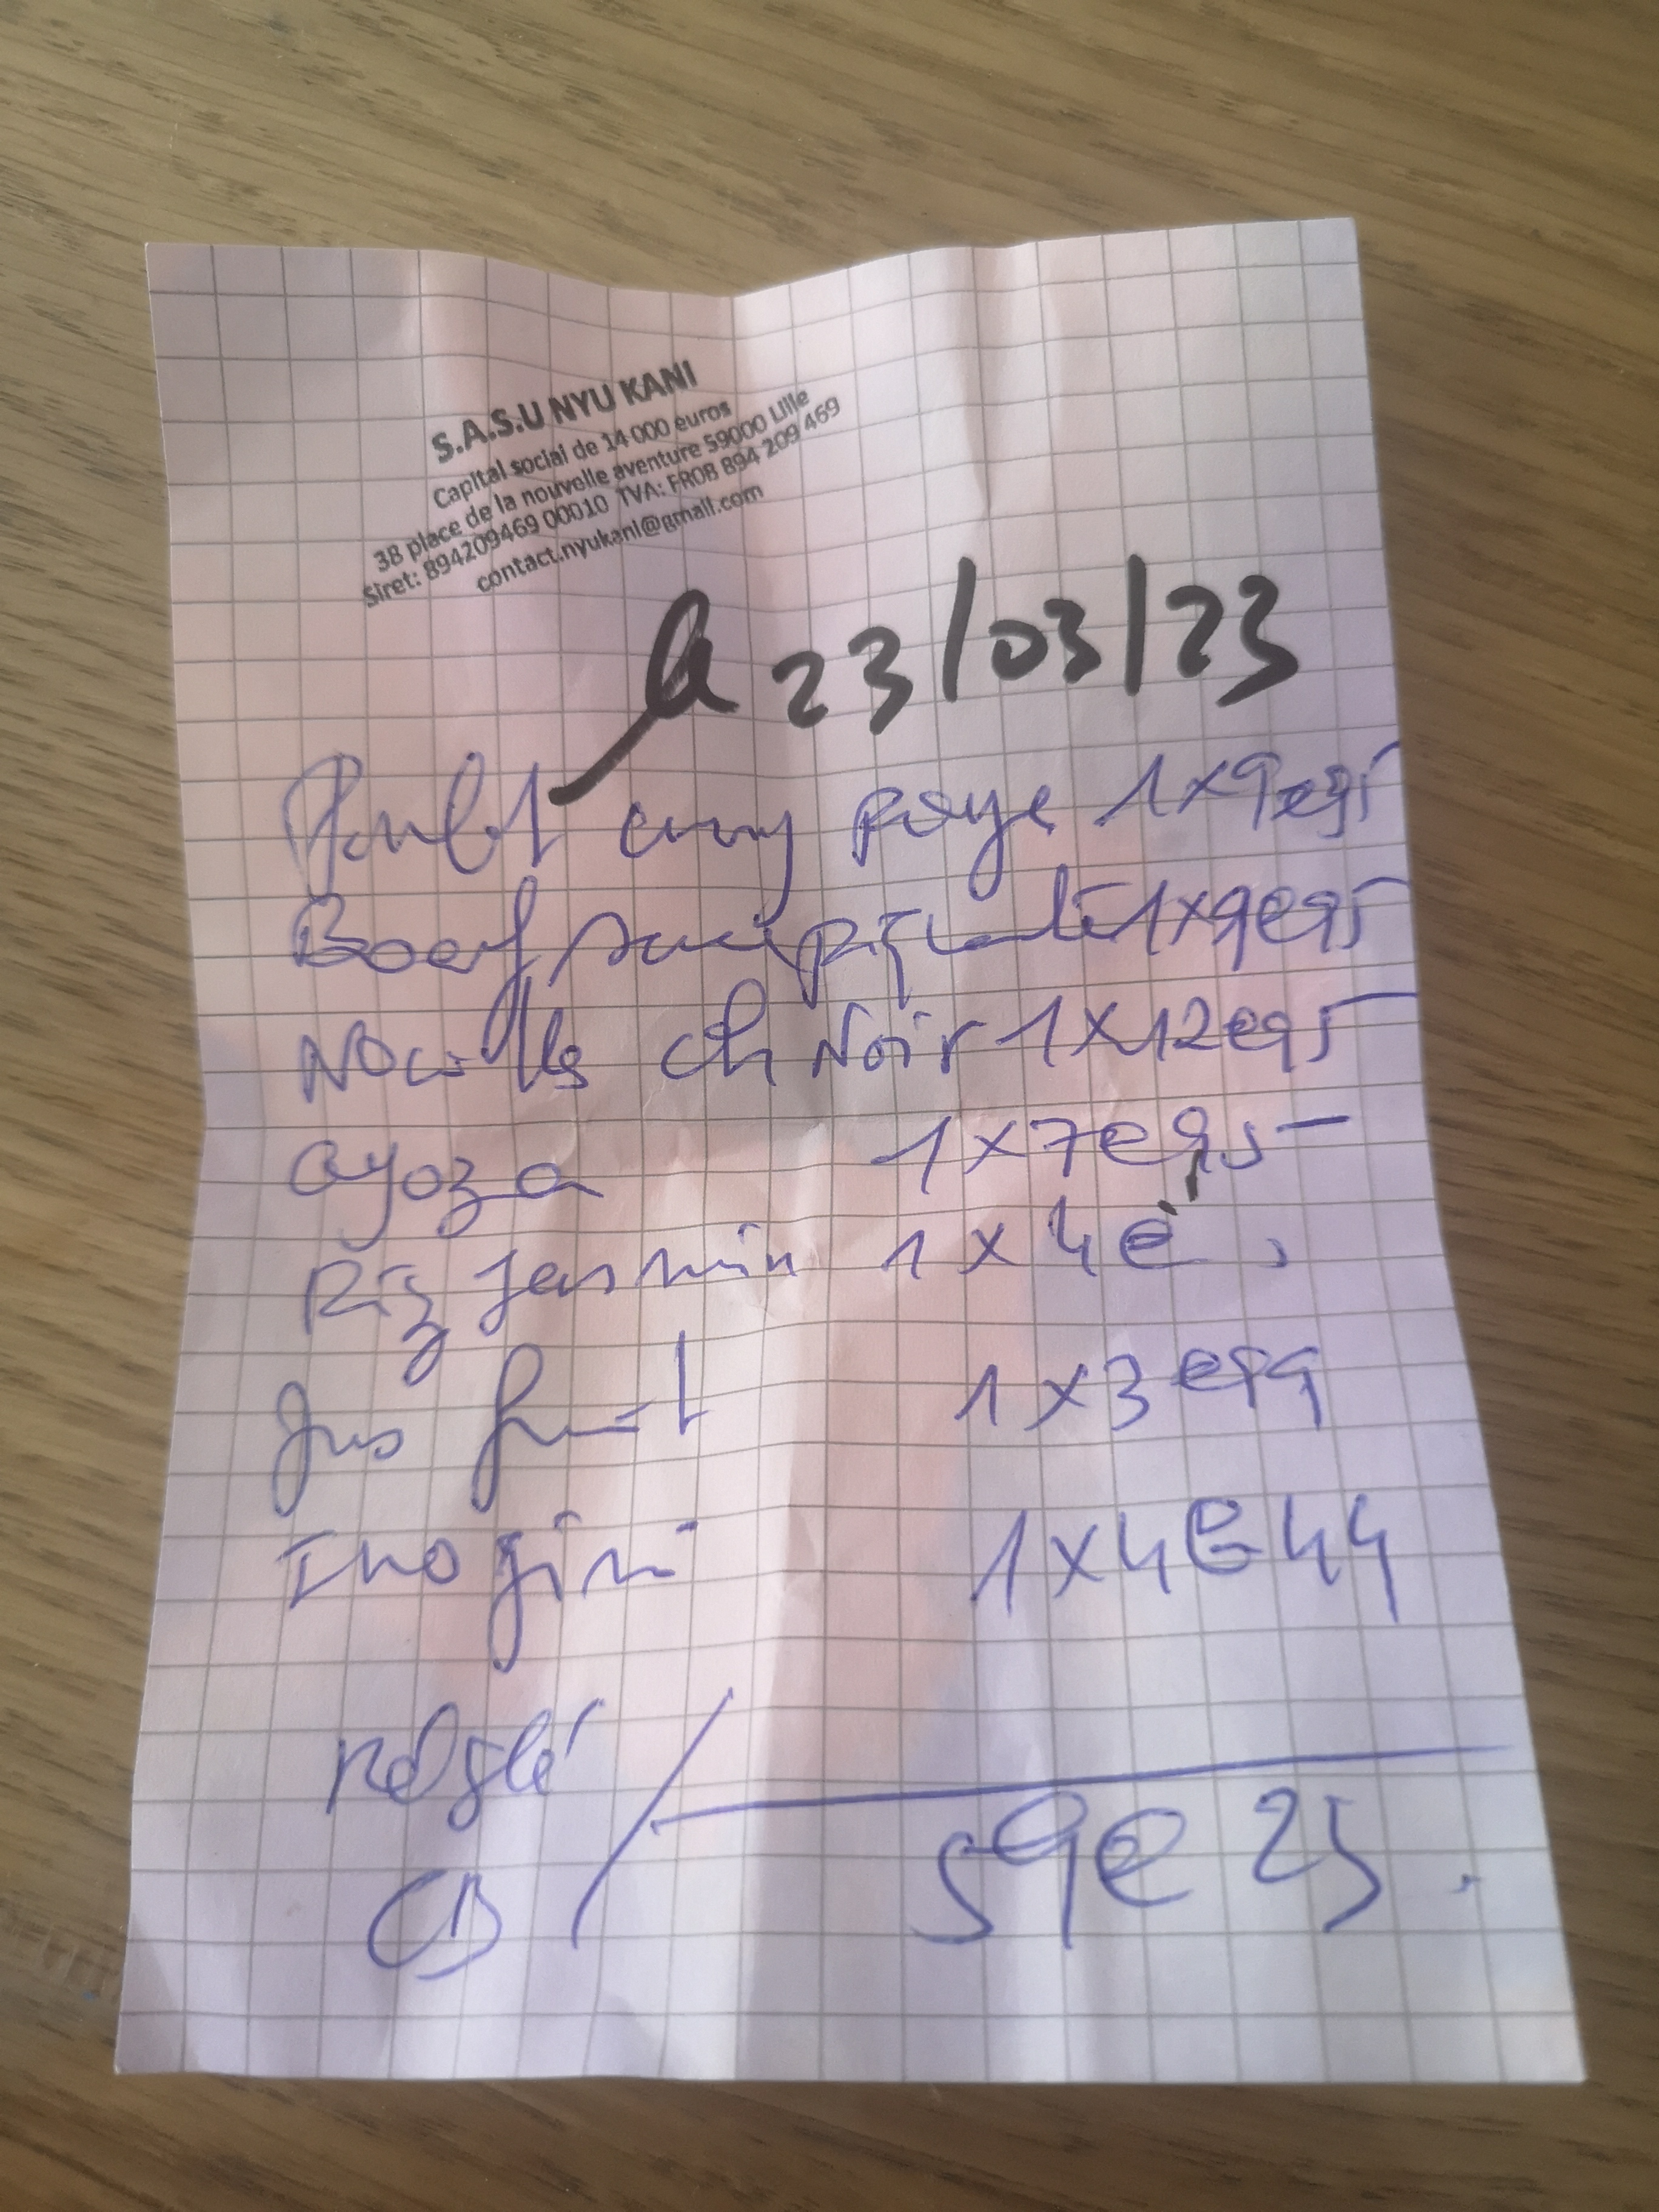 S.A.S.U NYU KANI
Capital social de 14 000 euros
38 place de la nouvelle aventure 59000 Lille
Siret: 894209469 00010 TVA: FR08 894 209 469
contact.nyukani@gmail.com
le 23/03/23
Poulet curry rouge 1x9e95
Boeuf sauce piquante 1x9e95
Nouilles ch Noir 1x12e95
Gyoza 1x7e95
Riz Jasmin 1x4e
Jus fruit 1x3e99
1x4e44
Réglé
CB
59e25.